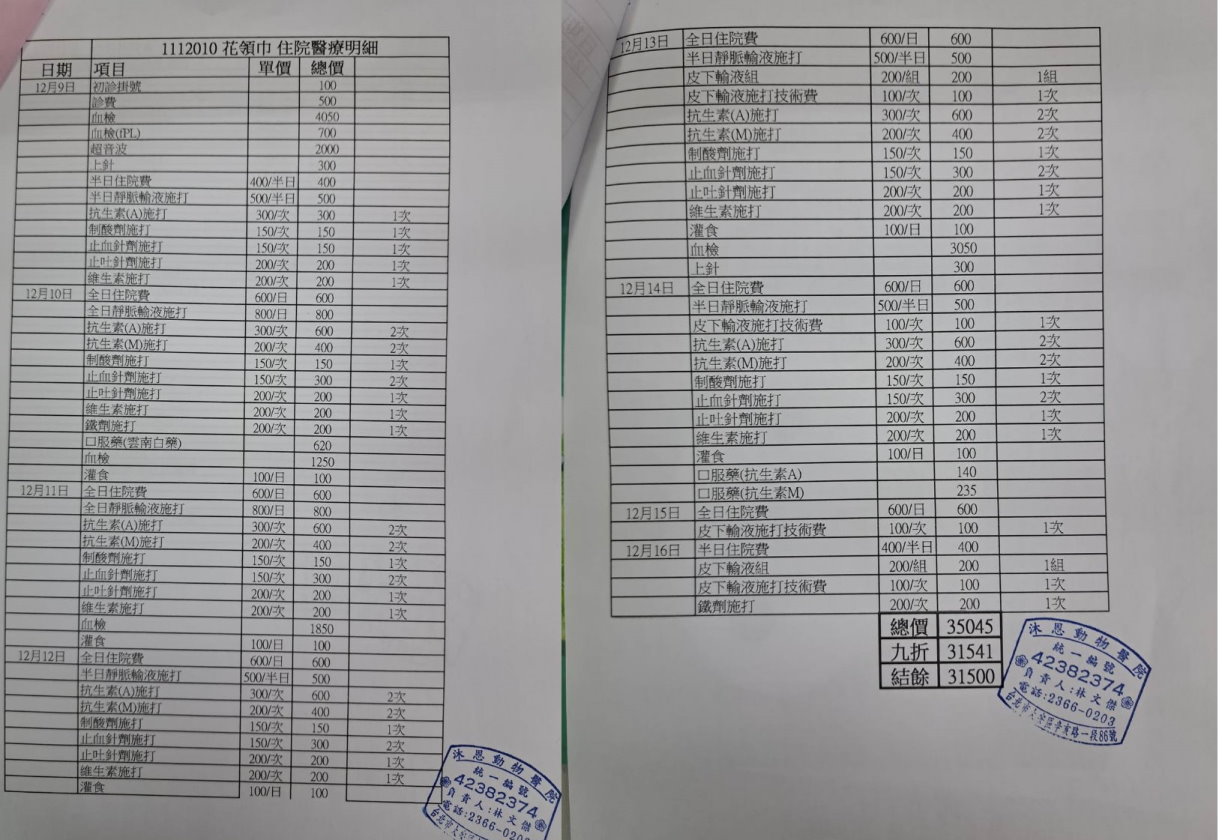 1112010 花領巾 住院醫療明細
日期 項目 單價 總價
12月9日 初診掛號 100
診費 500
血檢 4050
血檢(fPL) 700
超音波 2000
上針 300
半日住院費 400/半日 400
半日靜脈輸液施打 500/半日 500
抗生素(A)施打 300/次 300 1次
制酸劑施打 150/次 150 1次
止血針劑施打 150/次 150 1次
止吐針劑施打 200/次 200 1次
維生素施打 200/次 200 1次
12月10日 全日住院費 600/日 600
全日靜脈輸液施打 800/日 800
抗生素(A)施打 300/次 600 2次
抗生素(M)施打 200/次 400 2次
制酸劑施打 150/次 150 1次
止血針劑施打 150/次 300 2次
止吐針劑施打 200/次 200 1次
維生素施打 200/次 200 1次
鐵劑施打 200/次 200 1次
口服藥(雲南白藥) 620
血檢 1250
灌食 100/日 100
12月11日 全日住院費 600/日 600
全日靜脈輸液施打 800/日 800
抗生素(A)施打 300/次 600 2次
抗生素(M)施打 200/次 400 2次
制酸劑施打 150/次 150 1次
止血針劑施打 150/次 300 2次
止吐針劑施打 200/次 200 1次
維生素施打 200/次 200 1次
血檢 1850
灌食 100/日 100
12月12日 全日住院費 600/日 600
半日靜脈輸液施打 500/半日 500
抗生素(A)施打 300/次 600 2次
抗生素(M)施打 200/次 400 2次
制酸劑施打 150/次 150 1次
止血針劑施打 150/次 300 2次
止吐針劑施打 200/次 200 1次
維生素施打 200/次 200 1次
灌食 100/日 100
沐恩動物醫院
統一編號
42382374
負責人:林文傑
電話:2366-0203
12月13日 全日住院費 600/日 600
半日靜脈輸液施打 500/半日 500
皮下輸液組 200/組 200 1組
皮下輸液施打技術費 100/次 100 1次
抗生素(A)施打 300/次 600 2次
抗生素(M)施打 200/次 400 2次
制酸劑施打 150/次 150 1次
止血針劑施打 150/次 300 2次
止吐針劑施打 200/次 200 1次
維生素施打 200/次 200 1次
灌食 100/日 100
血檢 3050
上針 300
12月14日 全日住院費 600/日 600
半日靜脈輸液施打 500/半日 500
皮下輸液施打技術費 100/次 100 1次
抗生素(A)施打 300/次 600 2次
抗生素(M)施打 200/次 400 2次
制酸劑施打 150/次 150 1次
止血針劑施打 150/次 300 2次
止吐針劑施打 200/次 200 1次
維生素施打 200/次 200 1次
灌食 100/日 100
口服藥(抗生素A) 140
口服藥(抗生素M) 235
12月15日 全日住院費 600/日 600
皮下輸液施打技術費 100/次 100 1次
12月16日 半日住院費 400/半日 400
皮下輸液組 200/組 200 1組
皮下輸液施打技術費 100/次 100 1次
鐵劑施打 200/次 200 1次
總價 35045
九折 31541
結餘 31500
沐恩動物醫院
統一編號
42382374
負責人:林文傑
電話:2366-0203
台北市大安區辛亥路一段86號